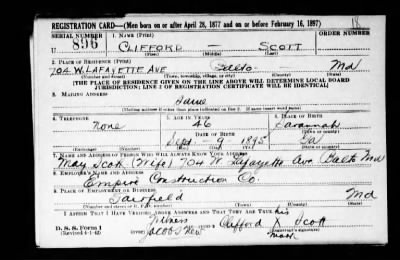 18
REGISTRATION CARD—(Men born on or after April 28, 1877 and on or before February 16, 1897)
SERIAL NUMBER 1. NAME (Print) ORDER NUMBER
U 896 CLIFFORD — SCOTT
(First) (Middle) (Last)
2. PLACE OF RESIDENCE (Print)
704 W. LAFAYETTE AVE Balto. Md
(Number and street) (Town, township, village, or city) (County) (State)
[THE PLACE OF RESIDENCE GIVEN ON THE LINE ABOVE WILL DETERMINE LOCAL BOARD
JURISDICTION; LINE 2 OF REGISTRATION CERTIFICATE WILL BE IDENTICAL]
3. MAILING ADDRESS
Same
[Mailing address if other than place indicated on line 2. If same insert word same]
4. TELEPHONE 5. AGE IN YEARS 6. PLACE OF BIRTH
None 46 Savannah
DATE OF BIRTH (Town or county)
Sept. - 9 - 1895 Ga
(Mo.) (Day) (Yr.) (State or country)
7. NAME AND ADDRESS OF PERSON WHO WILL ALWAYS KNOW YOUR ADDRESS
May Scott (Wife) 704 W. Lafayette Ave Balto Md
8. EMPLOYER'S NAME AND ADDRESS
Empire Construction Co.
9. PLACE OF EMPLOYMENT OR BUSINESS
Fairfield Md
(Number and street or R. F. D. number) (Town) (County) (State)
I AFFIRM THAT I HAVE VERIFIED ABOVE ANSWERS AND THAT THEY ARE TRUE.
his
Witness
Clifford X Scott
D. S. S. Form 1 Jacob
(Revised 4-1-42) (over) (Registrant's signature)
mark